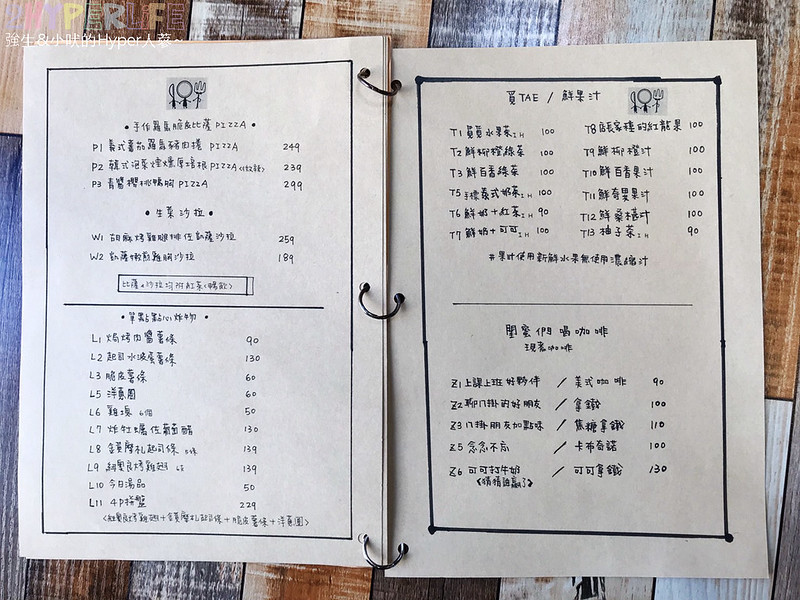 HYPERLIFE
強生&小吠的Hyper人蔘~
• 手作羅馬脆&比薩 PIZZA •
P1 義式蕃茄羅馬豬肉捲 PIZZA 249
P2 韓式泡菜煙燻厚培根PIZZA 239
P3 青醬櫻桃鴨胸 PIZZA 299
• 生菜沙拉 •
W1 胡麻烤雞腿排佐凱薩沙拉 259
W2 凱薩嫩煎雞胸沙拉 189
比薩&沙拉均附紅茶(暢飲)
• 單點點心炸物 •
L1 焗烤肉醬薯條 90
L2 起司水波蛋薯條 130
L3 脆皮薯條 60
L5 洋蔥圈 60
L6 雞塊 6個 50
L7 炸牡蠣佐葡萄醋 130
L8 金莫摩札起司條 5條 139
L9 紐奧良烤雞翅 6支 139
L10 今日湯品 50
L11 4P拼盤 229
(紐奧良烤雞翅+金莫摩札起司條+脆皮薯條+洋蔥圈)
覓TAE / 鮮果汁
T1 覓覓水果茶 I H 100
T2 鮮柳橙綠茶 100
T3 鮮百香綠茶 100
T5 手標泰式奶茶 I H 100
T6 鮮奶+紅茶 I H 90
T7 鮮奶+可可 I H 100
T8 店長家種的紅龍果 100
T9 鮮柳橙汁 100
T10 鮮百香果汁 100
T11 鮮奇異果汁 100
T12 鮮桑椹汁 100
T13 柚子茶 I H 90
#果汁使用新鮮水果無使用濃縮汁
閨蜜們喝咖啡
現煮咖啡
Z1 上課上班好夥伴 / 美式咖啡 90
Z2 聊八掛的好朋友 / 拿鐵 100
Z3 八掛朋友加點味 / 焦糖拿鐵 110
Z5 念念不忘 / 卡布奇諾 100
Z6 可可打牛奶 / 可可拿鐵 130
(猜猜誰贏了)